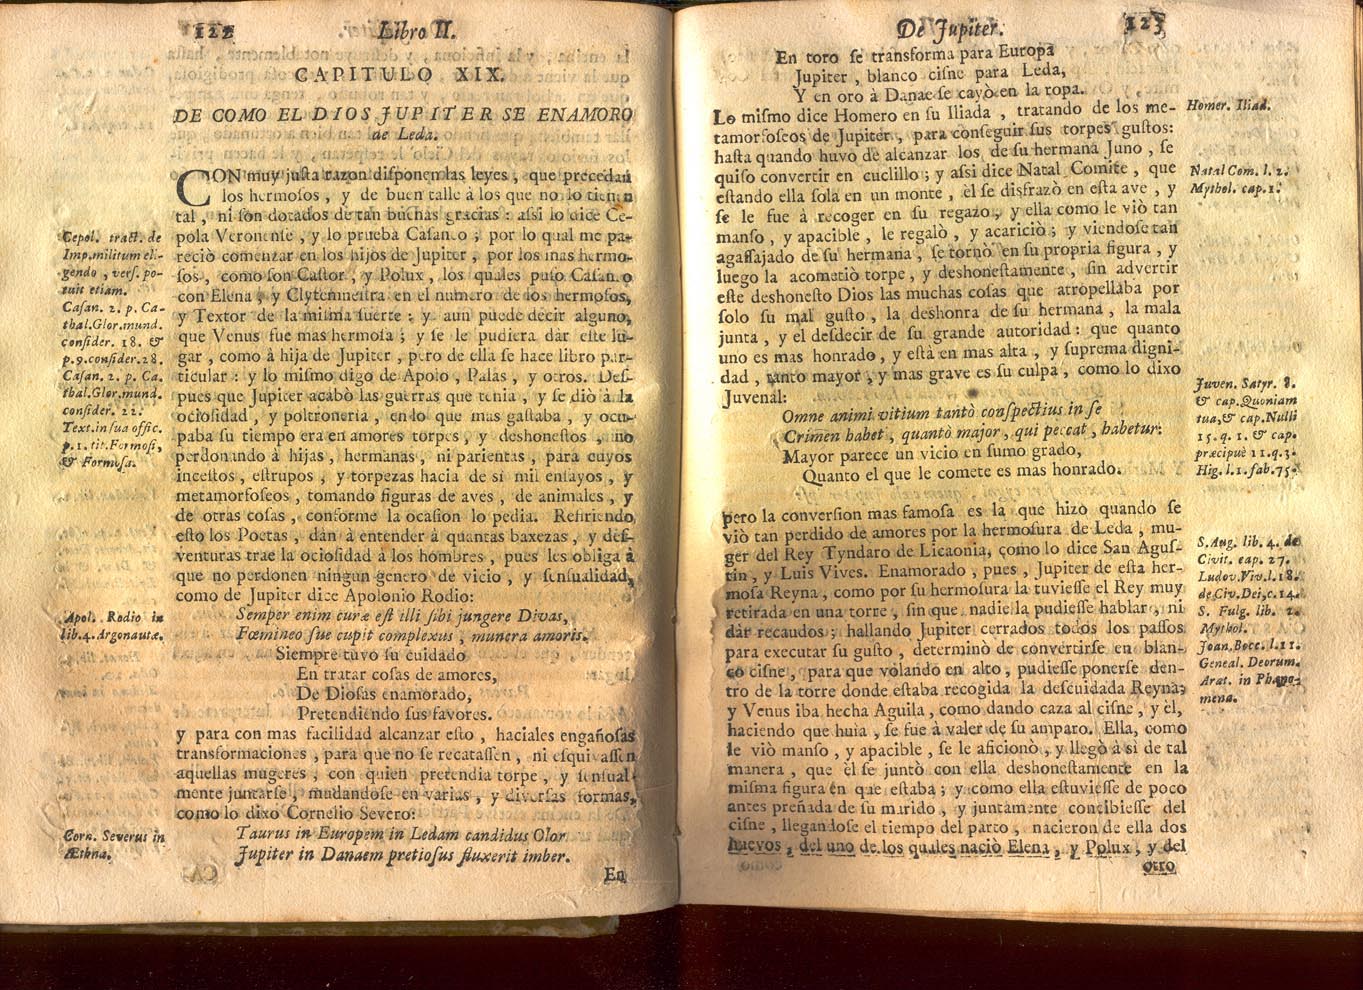 122 Libro II.
CAPITULO XIX.
DE COMO EL DIOS JUPITER SE ENAMORO
de Leda.
CON muy juſta razon diſponen las leyes, que precedan
los hermoſos, y de buen talle à los que no lo tienen
tal, ni ſon dotados de tan buenas gracias: aſsi lo dice Ce-
pola Veronenſe, y lo prueba Caſaneo; por lo qual me pa-
reciò comenzar en los hijos de Jupiter, por los mas hermo-
ſos, como ſon Caſtor, y Polux, los quales puſo Caſaneo
con Elena, y Clytemneſtra en el numero de los hermoſos,
y Textor de la miſma ſuerte: y aun puede decir alguno,
que Venus fue mas hermoſa; y ſe le pudiera dàr eſte lu-
gar, como à hija de Jupiter, pero de ella ſe hace libro par-
ticular: y lo miſmo digo de Apolo, Palas, y otros. Deſ-
pues que Jupiter acabò las guerras que tenia, y ſe diò à la
ocioſidad, y poltroneria, en lo que mas gaſtaba, y ocu-
paba ſu tiempo era en amores torpes, y deshoneſtos, no
perdonando à hijas, hermanas, ni parientas, para cuyos
inceſtos, eſtrupos, y torpezas hacia de sì mil enſayos, y
metamorfoſeos, tomando figuras de aves, de animales, y
de otras coſas, conforme la ocaſion lo pedia. Refiriendo
eſto los Poetas, dàn à entender à quantas baxezas, y deſ-
venturas trae la ocioſidad à los hombres, pues les obliga à
que no perdonen ningun genero de vicio, y ſenſualidad,
como de Jupiter dice Apolonio Rodio:
Semper enim curæ eſt illi ſibi jungere Divas,
Fœmineo ſue cupit complexus, munera amoris.
Siempre tuvo ſu cuidado
En tratar coſas de amores,
De Dioſas enamorado,
Pretendiendo ſus favores.
y para con mas facilidad alcanzar eſto, haciales engañoſas
transformaciones, para que no ſe recataſſen, ni eſquivaſſen
aquellas mugeres, con quien pretendia torpe, y ſenſual-
mente juntarſe, mudandoſe en varias, y diverſas formas,
como lo dixo Cornelio Severo:
Taurus in Europem in Ledam candidus Olor
Jupiter in Danaem pretioſus fluxerit imber.
En
Cepol. tract. de
Imp.militum eli-
gendo, verſ. po-
tuit etiam.
Caſan. 2. p. Ca-
thal.Glor.mund.
conſider. 18. &
p.9.conſider.28.
Caſan. 2. p. Ca.
thal.Glor.mund.
conſider. 22.
Text.in ſua offic.
p.1.tit.Formoſi,
& Formoſa.
Apol. Rodio in
lib.4.Argonautæ.
Corn. Severus in
Æthna.
De Jupiter. 123
En toro ſe transforma para Europa
Jupiter, blanco ciſne para Leda,
Y en oro à Danae ſe cayò en la ropa.
Lo miſmo dice Homero en ſu Iliada, tratando de los me-
tamorfoſeos de Jupiter, para conſeguir ſus torpes guſtos:
haſta quando huvo de alcanzar los de ſu hermana Juno, ſe
quiſo convertir en cuclillo; y aſsi dice Natal Comite, que
eſtando ella ſola en un monte, èl ſe disfrazò en eſta ave, y
ſe le fue à recoger en ſu regazo, y ella como le viò tan
manſo, y apacible, le regalò, y acariciò; y viendoſe tan
agaſſajado de ſu hermana, ſe tornò en ſu propria figura, y
luego la acometiò torpe, y deshoneſtamente, ſin advertir
eſte deshoneſto Dios las muchas coſas que atropellaba por
ſolo ſu mal guſto, la deshonra de ſu hermana, la mala
junta, y el deſdecir de ſu grande autoridad: que quanto
uno es mas honrado, y eſtà en mas alta, y ſuprema digni-
dad, tanto mayor, y mas grave es ſu culpa, como lo dixo
Juvenal:
Omne animi vitium tantò conſpectius in ſe
Crimen habet, quantò major, qui peccat, habetur:
Mayor parece un vicio en ſumo grado,
Quanto el que le comete es mas honrado.
pero la converſion mas famoſa es la que hizo quando ſe
viò tan perdido de amores por la hermoſura de Leda, mu-
ger del Rey Tyndaro de Licaonia, como lo dice San Aguſ-
tin, y Luis Vives. Enamorado, pues, Jupiter de eſta her-
moſa Reyna, como por ſu hermoſura la tuvieſſe el Rey muy
retirada en una torre, ſin que nadie la pudieſſe hablar, ni
dàr recaudos; hallando Jupiter cerrados todos los paſſos
para executar ſu guſto, determinò de convertirſe en blan-
co ciſne, para que volando en alto, pudieſſe ponerſe den-
tro de la torre donde eſtaba recogida la deſcuidada Reyna;
y Venus iba hecha Aguila, como dando caza al ciſne, y èl,
haciendo que huìa, ſe fue à valer de ſu amparo. Ella, como
le viò manſo, y apacible, ſe le aficionò, y llegò à sì de tal
manera, que èl ſe juntò con ella deshoneſtamente en la
miſma figura en que eſtaba; y como ella eſtuvieſſe de poco
antes preñada de ſu marido, y juntamente concibieſſe del
ciſne, llegandoſe el tiempo del parto, nacieron de ella dos
huevos, del uno de los quales naciò Elena, y Polux, y del
otro
Homer. Iliad.
Natal Com. l. 2.
Mythol. cap. 1.
Juven. Satyr. 8.
& cap.Quoniam
tua,& cap.Nulli
15. q. 1. & cap.
præcipuè 11.q.3.
Hig. l.1. fab.75.
S. Aug. lib. 4. de
Civit. cap. 27.
Ludov.Viv.l.18.
de Civ.Dei,c.14.
S. Fulg. lib. 2.
Mythol.
Joan.Bocc. l.11.
Geneal. Deorum.
Arat. in Phæno-
mena.